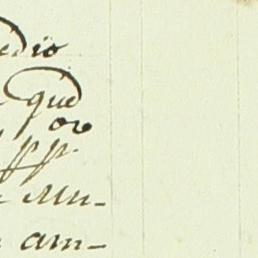 edio
que
or
pp.
mu-
am-